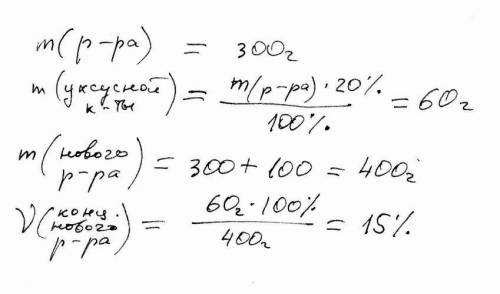 m(р-ра) = 300г
m(уксусной к-ты) = m(р-ра)·20% / 100% = 60г
m(нового р-ра) = 300 + 100 = 400г
V(конц. нового р-ра) = 60г·100% / 400г = 15%